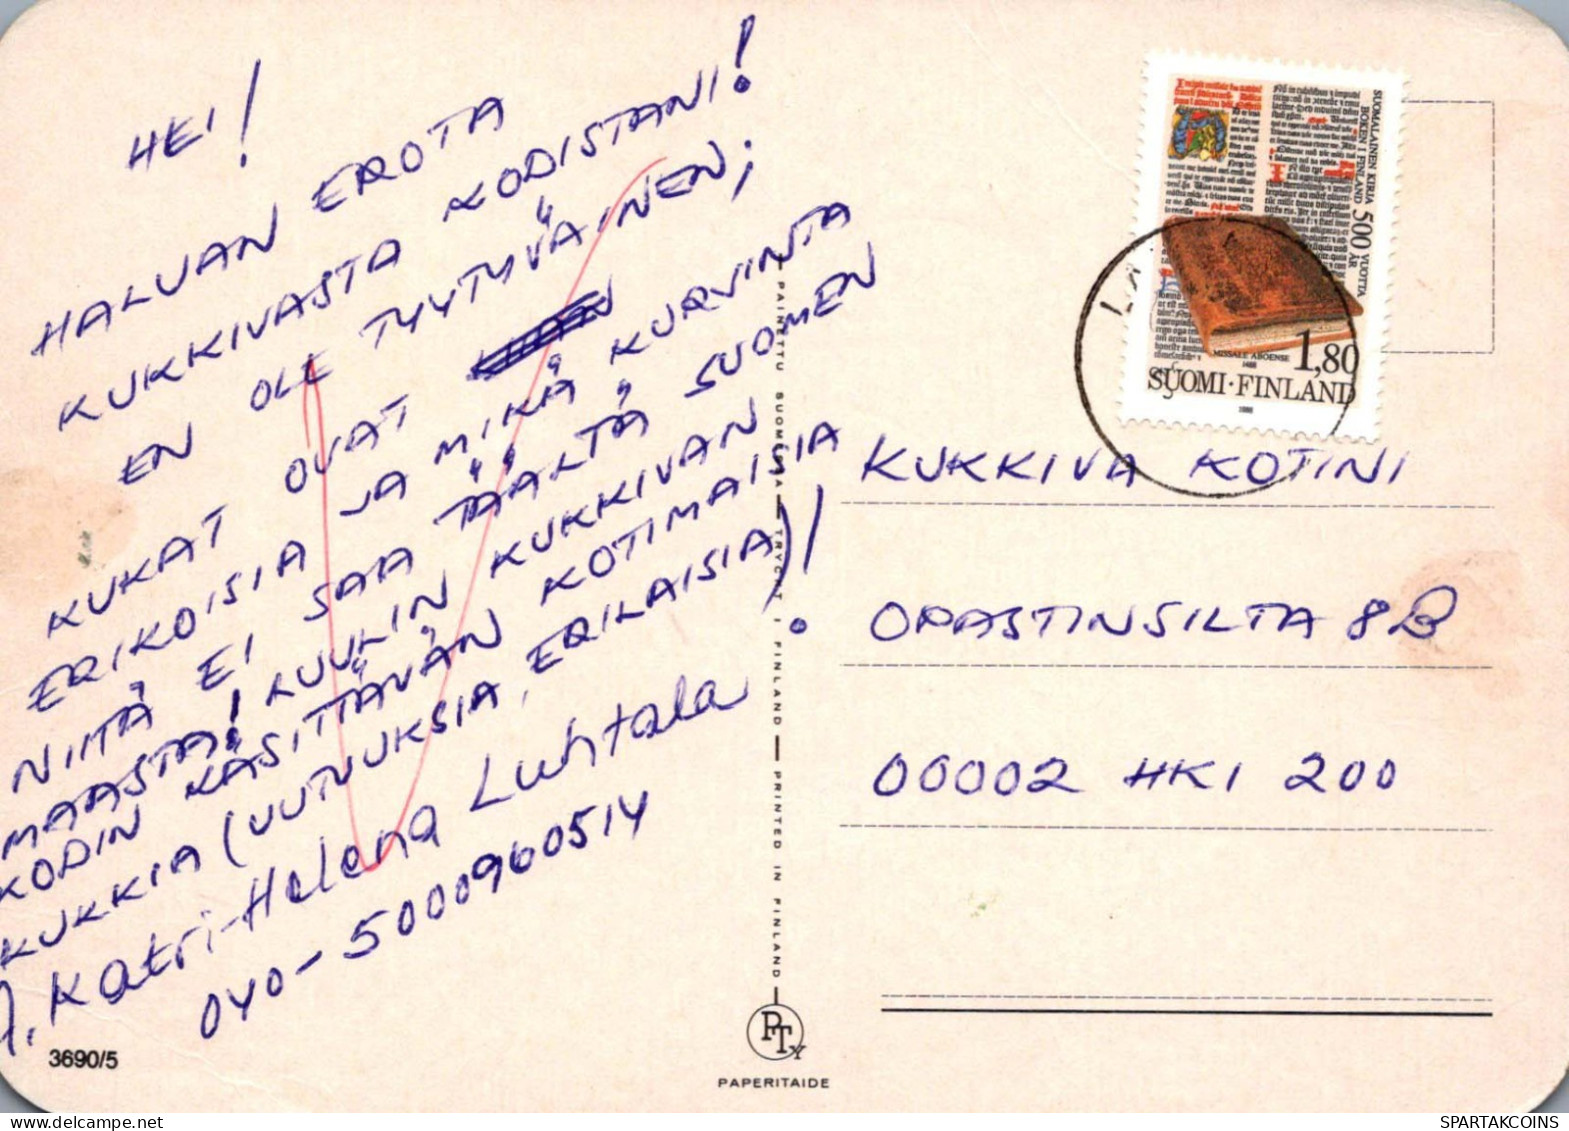 HEI!
HALUAN EROTA
KUKKIVASTA KODISTANI!
EN OLE TYYTYVÄINEN;
KUKAT OVAT
ERIKOISIA JA MIKÄ KURVINTA
NIITÄ EI SAA TÄÄLTÄ SUOMEN
MAASTA! LUULIN KUKKIVAN
KODIN KÄSITTÄVÄN KOTIMAISIA
KUKKIA (UUTUUKSIA, ERILAISIA)!
Katri-Helena Luhtala
040-5000960514
3690/5
PAINETTU SUOMESSA — TRYCKT I FINLAND — PRINTED IN FINLAND
PTY
PAPERITAIDE
SUOMALAINEN KIRJA 500 VUOTTA
BOKEN I FINLAND 500 ÅR
MISSALE ABOENSE
1488
1,80
SUOMI·FINLAND
1988
KUKKIVA KOTINI
OPASTINSILTA 8B
00002 HKI 200
SPARTAKCOINS